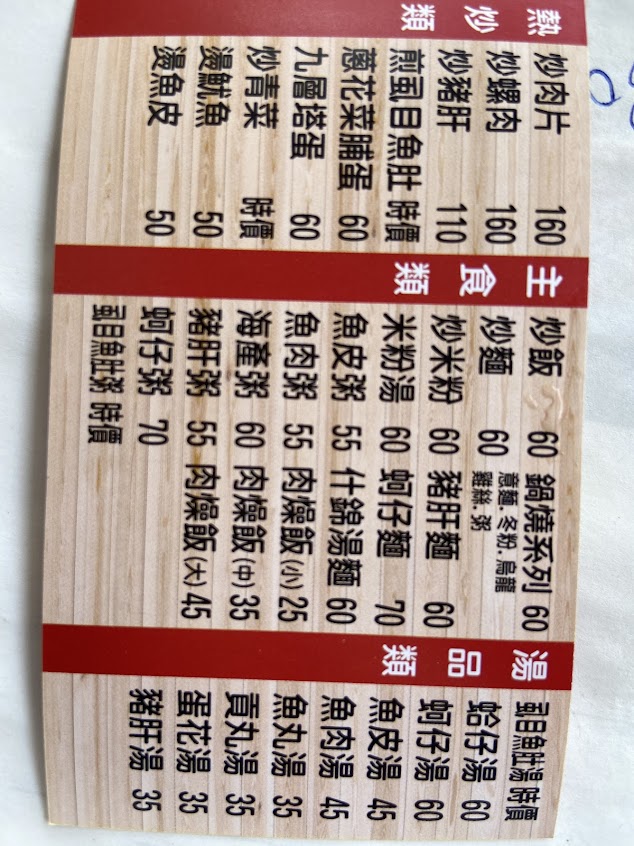 熱炒類
炒肉片 160
炒螺肉 160
炒豬肝 110
煎虱目魚肚 時價
蔥花菜脯蛋 60
九層塔蛋 60
炒青菜 時價
燙魷魚 50
燙魚皮 50
主食類
炒飯 60
炒麵 60
炒米粉 60
米粉湯 60
魚皮粥 55
魚肉粥 55
海產粥 60
豬肝粥 55
蚵仔粥 70
虱目魚肚粥 時價
鍋燒系列 60
意麵.冬粉.烏龍
雞絲.粥
豬肝麵 60
蚵仔麵 70
什錦湯麵 60
肉燥飯(小) 25
肉燥飯(中) 35
肉燥飯(大) 45
湯品類
虱目魚肚湯 時價
蛤仔湯 60
蚵仔湯 60
魚皮湯 45
魚肉湯 45
魚丸湯 35
貢丸湯 35
蛋花湯 35
豬肝湯 35